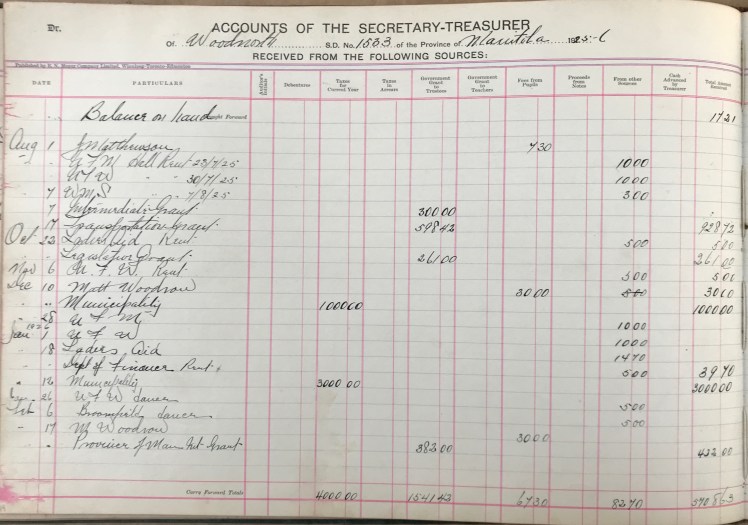 Dr. ACCOUNTS OF THE SECRETARY-TREASURER
Of Woodnorth S.D. No. 1883 of the Province of Manitoba 1925-6
RECEIVED FROM THE FOLLOWING SOURCES:
DATE PARTICULARS Auditor's Initials Debentures Taxes for Current Year Taxes in Arrears Government Grant to Trustees Government Grants to Teachers Fees from Pupils Proceeds from Notes From other Sources Cash Advanced by Treasurer Total Amount Received
Balance on hand Brought Forward 17 21
Aug 1 J Matthewson 7 30
U F M Hall Rent 23/7/25 10 00
U F W " " 30/7/25 10 00
" 7 W.M.S " " 7/8/25 3 00
" 7 Intermediate Grant 300 00
" 17 Transportation Grant 598 42 928 72
Oct 23 Ladies Aid Rent 5 00 5 00
Legislative Grant 261 00 261 00
Nov 6 U. F. W. Rent 5 00 5 00
Dec 10 Matt Woodrow 30 00 5 00 30 00
" " Municipality 1000 00 1000 00
" 28 U F M 10 00
Jan 1926 1 U F W 10 00
" 18 Ladies Aid 14 70
Dept of Finance Rent 5 00 39 70
" 12 Municipality 3000 00 3000 00
26 U F W dance 5 00
Feb 6 Broomfield dance 5 00
" 17 M Woodrow 30 00
" Province of Man Int Grant 382 00 422 00
Carry Forward Totals 4000 00 1541 42 67 30 82 70 5708 63